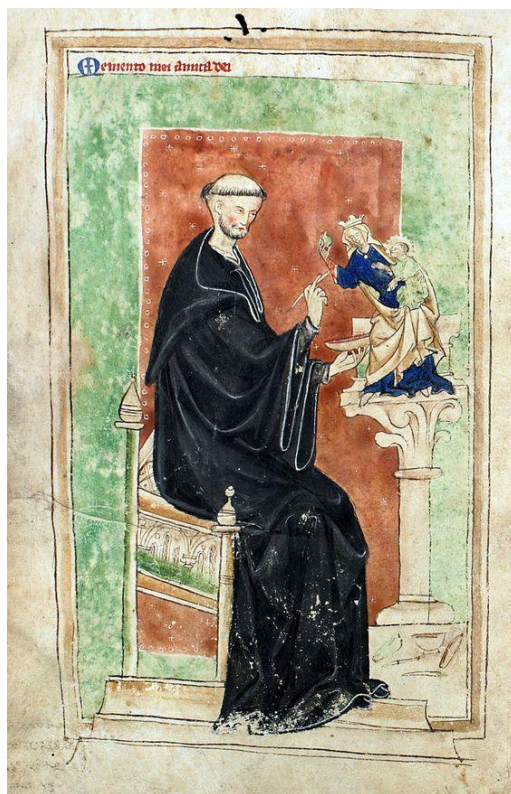 Memento mei amica dei